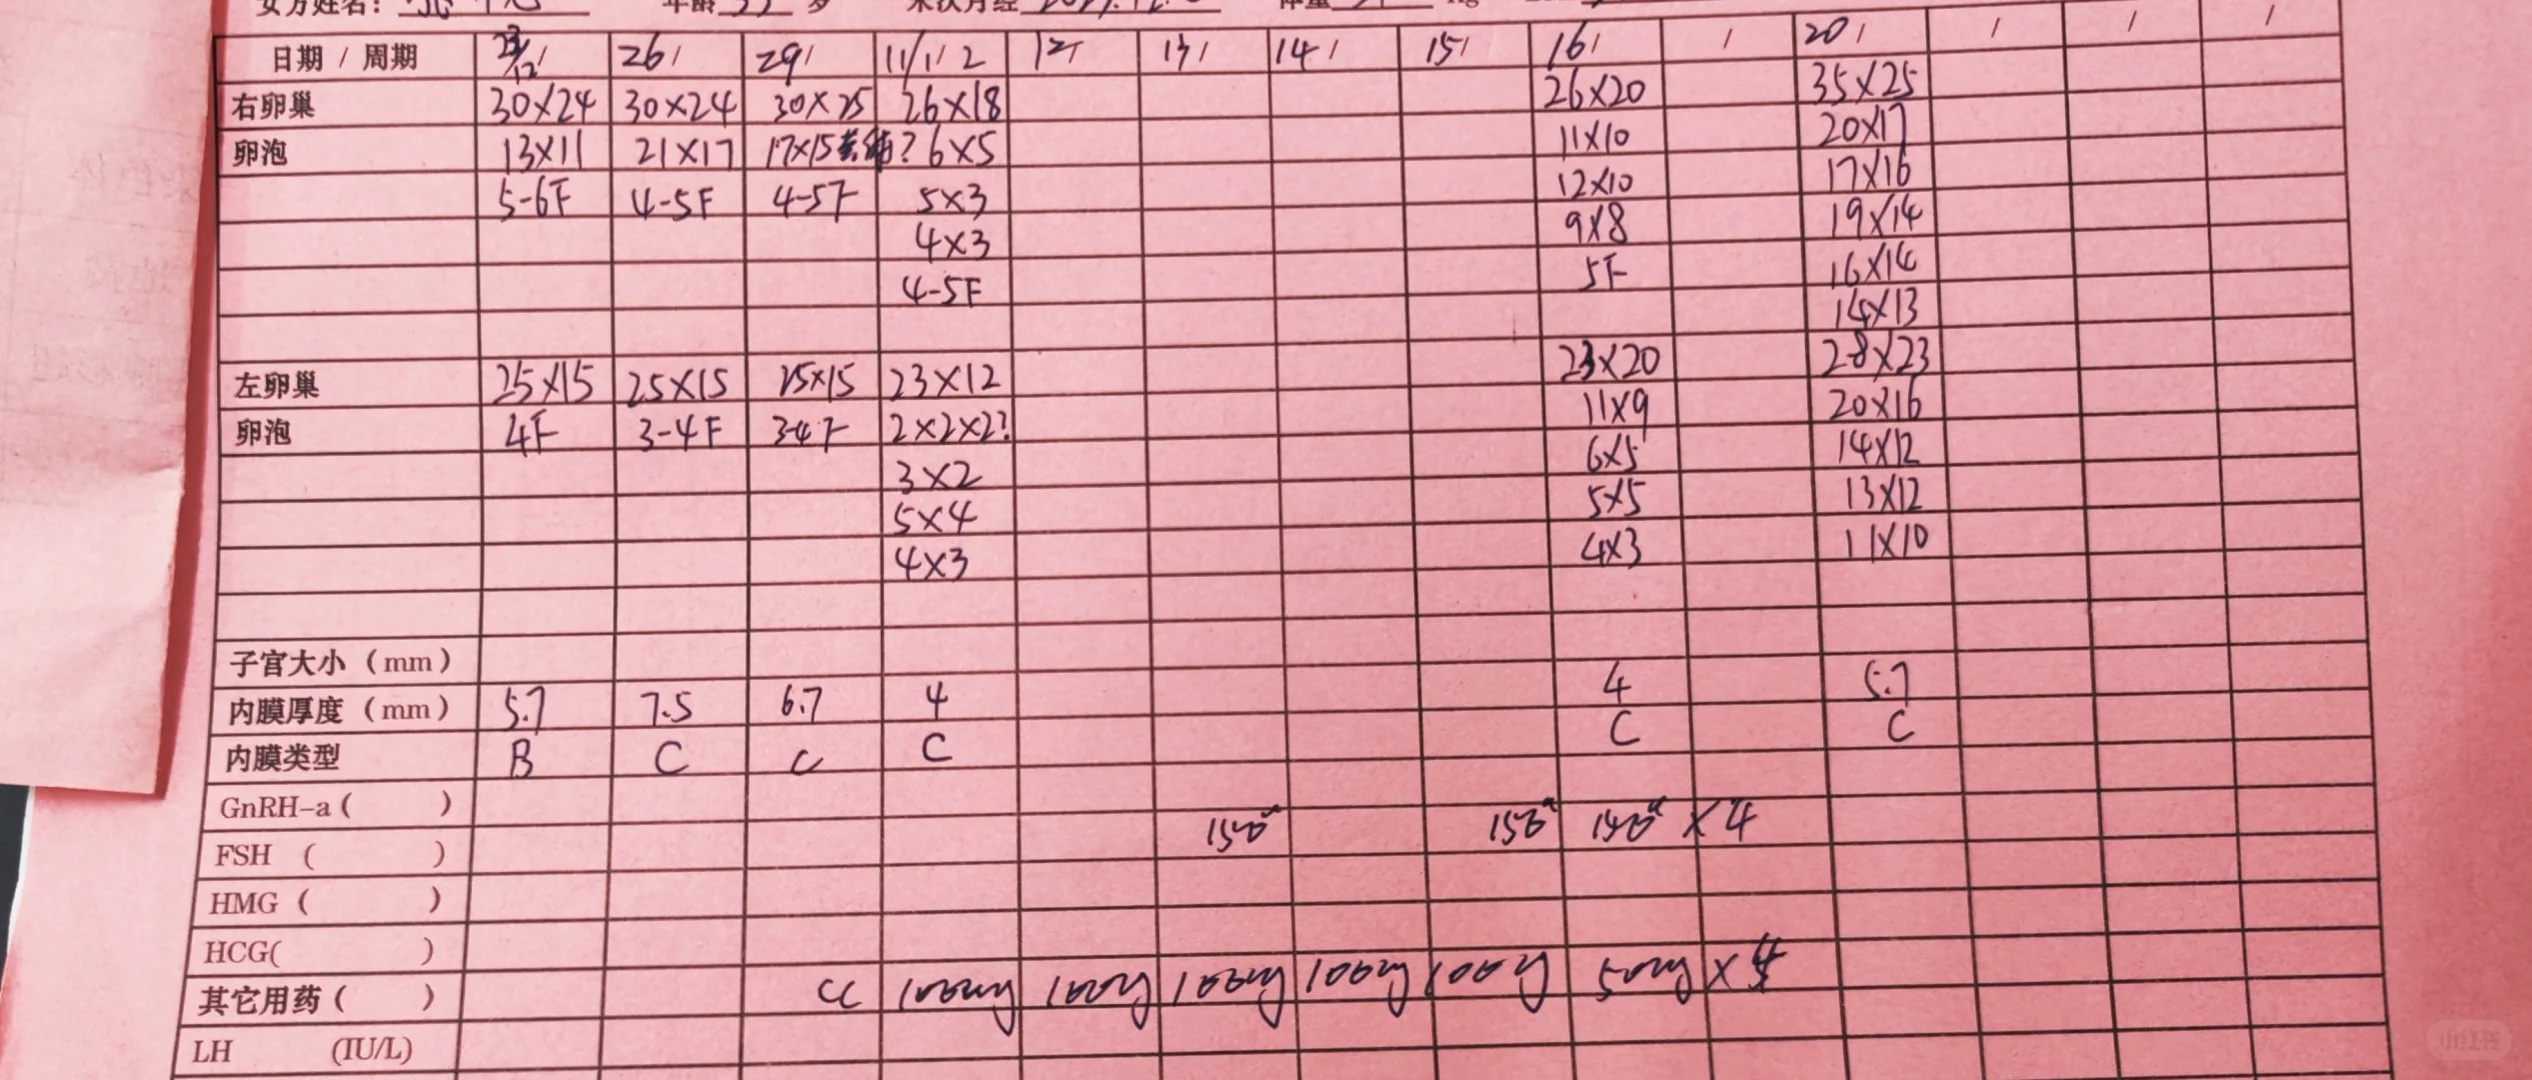 女方姓名： 年龄 岁 末次月经 体重 Kg
日期 / 周期 23/12 / 26 / 29 / 11/1 / 2 12 / 13 / 14 / 15 / 16 / / 20 / / / /
右卵巢 30×24 30×24 30×25 26×18 26×20 35×25
卵泡 13×11 21×17 17×15 ? 6×5 11×10 20×17
5-6F 4-5F 4-5F 5×3 12×10 17×16
4×3 9×8 19×14
4-5F 5F 16×14
14×13
左卵巢 25×15 25×15 25×15 23×12 23×20 28×23
卵泡 4F 3-4F 3-4F 2×2×2? 11×9 20×16
3×2 6×5 14×12
5×4 5×5 13×12
4×3 4×3 11×10
子宫大小（mm）
内膜厚度（mm） 5.7 7.5 6.7 4 4 5.7
内膜类型 B C C C C C
GnRH-a ( )
FSH ( ) 150u 150u 150u × 4
HMG ( )
HCG( )
其它用药 ( ) CC 100mg 100mg 100mg 100mg 100mg 50mg ×
LH (IU/L)
小红书